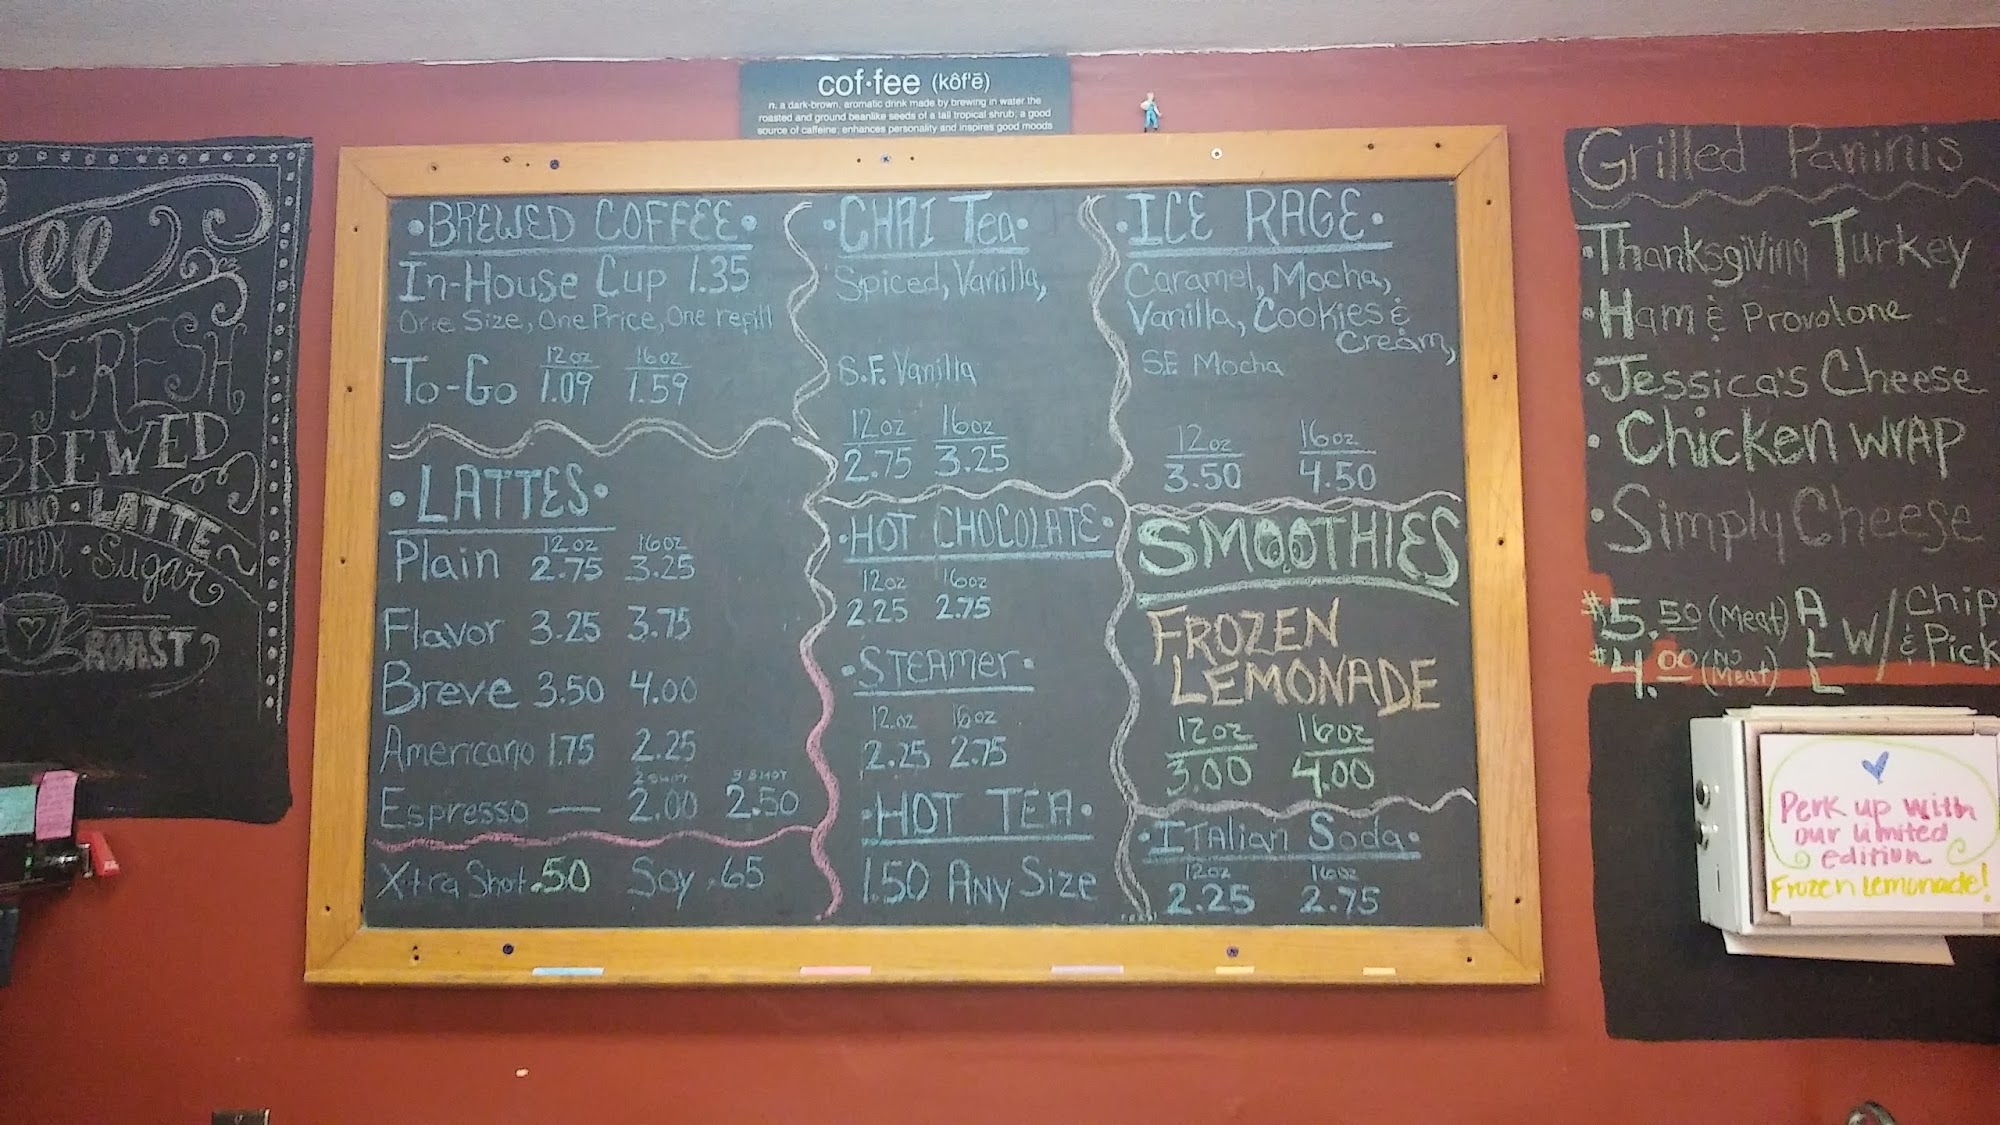 cof·fee (kôf'ē)
n. a dark-brown, aromatic drink made by brewing in water the
roasted and ground beanlike seeds of a tall tropical shrub; a good
source of caffeine; enhances personality and inspires good moods
FRESH
BREWED
LATTE
Milk · Sugar
ROAST
• BREWED COFFEE •
In-House Cup 1.35
One Size, One Price, One refill
12oz 16oz
To-Go 1.09 1.59
• LATTES •
12oz 16oz
Plain 2.75 3.25
Flavor 3.25 3.75
Breve 3.50 4.00
Americano 1.75 2.25
2 SHOT 3 SHOT
Espresso — 2.00 2.50
Xtra Shot .50 Soy .65
• CHAI Tea •
Spiced, Vanilla,
S.F. Vanilla
12oz 16oz
2.75 3.25
• HOT CHOCOLATE •
12oz 16oz
2.25 2.75
• STEAMER •
12oz 16oz
2.25 2.75
• HOT TEA •
1.50 Any Size
• ICE RAGE •
Caramel, Mocha,
Vanilla, Cookies &
Cream,
S.F. Mocha
12oz 16oz
3.50 4.50
SMOOTHIES
FROZEN
LEMONADE
12oz 16oz
3.00 4.00
• ITALIAN SODA •
12oz 16oz
2.25 2.75
Grilled Paninis
• Thanksgiving Turkey
• Ham & Provolone
• Jessica's Cheese
• Chicken WRAP
• Simply Cheese
$5.50 (Meat)
$4.00 (No Meat)
ALL W/ Chip
& Pick
Perk up with
our limited
edition
Frozen Lemonade!